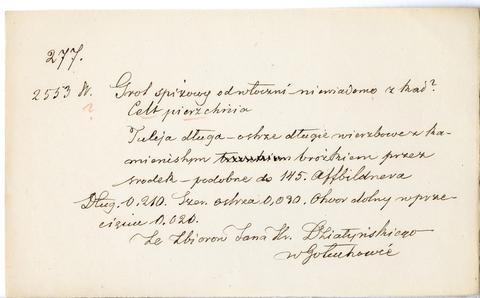 277.
2553 N. Grot spiżowy od włoczni – niewiadomo z kąd?
? Celt pierzchnia
Tuleja długa – ostrze długie wierzbowe z ka-
mienistym brózkiem przez
srodek – podobne do 145. Affbildnera
Dług. 0.210. Szer. ostrza 0,030. Otwor dolny w prze-
cięciu 0.020.
Ze Zbiorow Jana Hr. Działyńskiego
w Gołuchowie